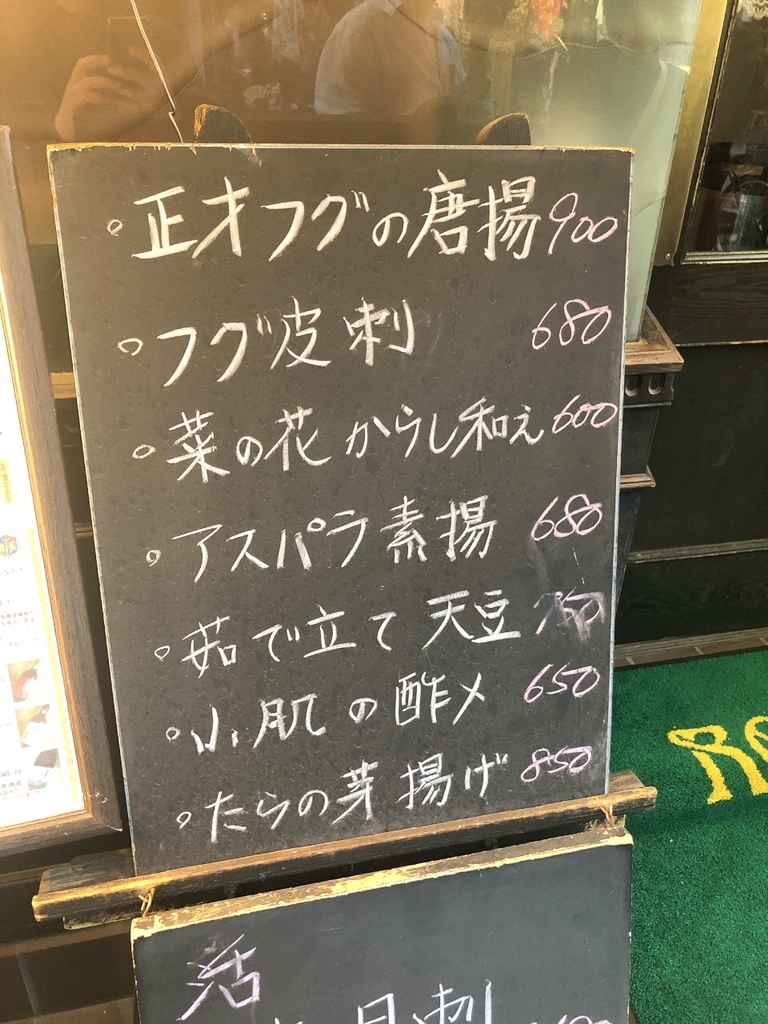 。正才フグの唐揚 900
。フグ皮刺 680
。菜の花 からし和え 600
。アスパラ素揚 680
。茹で立て 天豆
。小肌の酢〆 650
。たらの芽揚げ 850
活